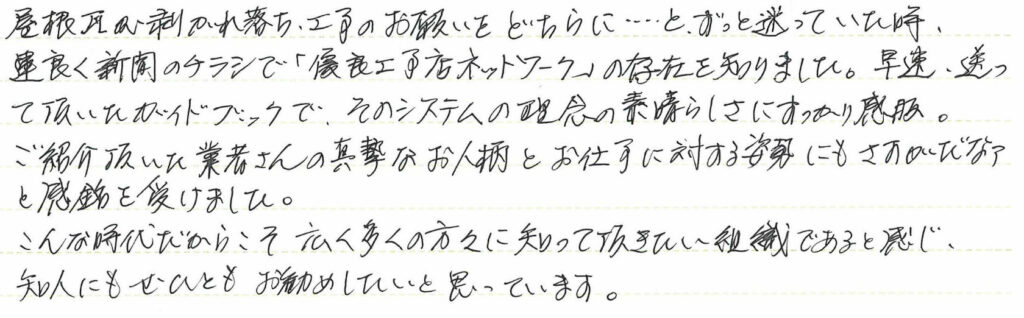 屋根瓦が剥がれ落ち、工事のお願いをどちらに……と、ずっと迷っていた時、
運良く新聞のチラシで「優良工事店ネットワーク」の存在を知りました。早速、送っ
て頂いたガイドブックで、そのシステムの理念の素晴らしさにすっかり感服。
ご紹介頂いた業者さんの真摯なお人柄とお仕事に対する姿勢にもさすがだなァ
と感銘を受けました。
こんな時代だからこそ広く多くの方々に知って頂きたい組織であると感じ、
知人にもぜひともお勧めしたいと思っています。